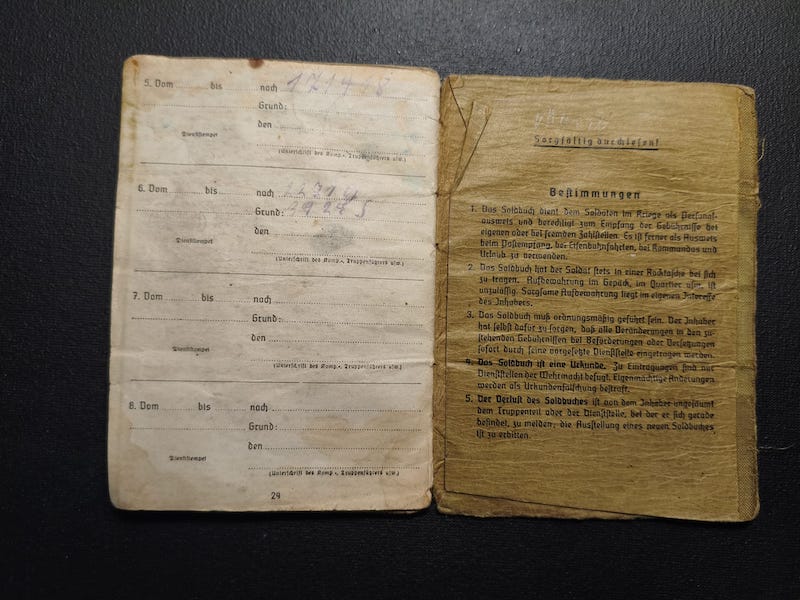 5. Vom bis nach 171418
Grund:
den
Dienststempel
(Unterschrift des Komp.-, Truppenführers usw.)
6. Vom bis nach
Grund:
den
Dienststempel
(Unterschrift des Komp.-, Truppenführers usw.)
7. Vom bis nach
Grund:
den
Dienststempel
(Unterschrift des Komp.-, Truppenführers usw.)
8. Vom bis nach
Grund:
den
Dienststempel
(Unterschrift des Komp.-, Truppenführers usw.)
29
Sorgfältig durchlesen!
Bestimmungen
1. Das Soldbuch dient dem Soldaten im Kriege als Personal-
ausweis und berechtigt zum Empfang der Gebührnisse bei
eigenen oder bei fremden Zahlstellen. Es ist ferner als Ausweis
beim Postempfang, bei Eisenbahnfahrten, bei Kommandos und
Urlaub zu verwenden.
2. Das Soldbuch hat der Soldat stets in einer Rocktasche bei sich
zu tragen. Aufbewahrung im Gepäck, im Quartier usw. ist
unzulässig. Sorgsame Aufbewahrung liegt im eigenen Interesse
des Inhabers.
3. Das Soldbuch muß ordnungsmäßig geführt sein. Der Inhaber
hat selbst dafür zu sorgen, daß alle Veränderungen in den zu-
stehenden Gebührnissen bei Beförderungen oder Versetzungen
sofort durch seine vorgesetzte Dienststelle eingetragen werden.
4. Das Soldbuch ist eine Urkunde. Zu Eintragungen sind nur
Dienststellen der Wehrmacht befugt. Eigenmächtige Änderungen
werden als Urkundenfälschung bestraft.
5. Der Verlust des Soldbuches ist von dem Inhaber ungesäumt
dem Truppenteil oder der Dienststelle, bei der er sich gerade
befindet, zu melden; die Ausstellung eines neuen Soldbuches
ist zu erbitten.